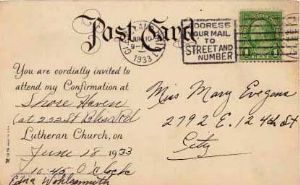 Post Card
ADDRESS
YOUR MAIL
TO
STREET AND
NUMBER
1933
You are cordially invited to
attend my Confirmation at
Shore Haven
Lutheran Church, on
June 18 1933
10:45 O'Clock
Edna Wohlsmith
Miss Mary
2792 E. 124th St
City